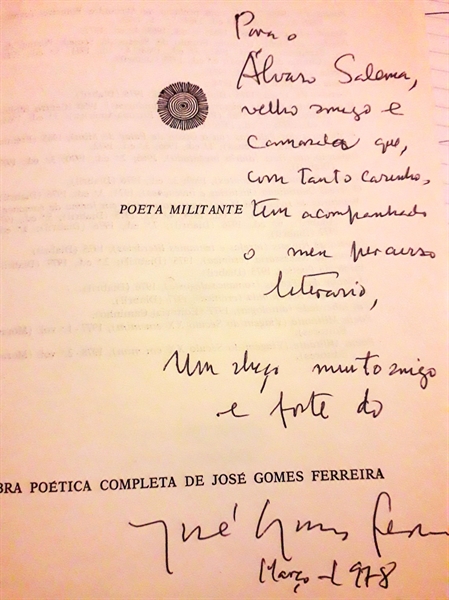 Para o
Álvaro Salema,
velho amigo e
camarada que,
com tanto carinho,
POETA MILITANTE
tem acompanhado
o meu percurso
literário,
Um abraço muito amigo
e forte do
OBRA POÉTICA COMPLETA DE JOSÉ GOMES FERREIRA
José Gomes Ferreira
Março - 1978